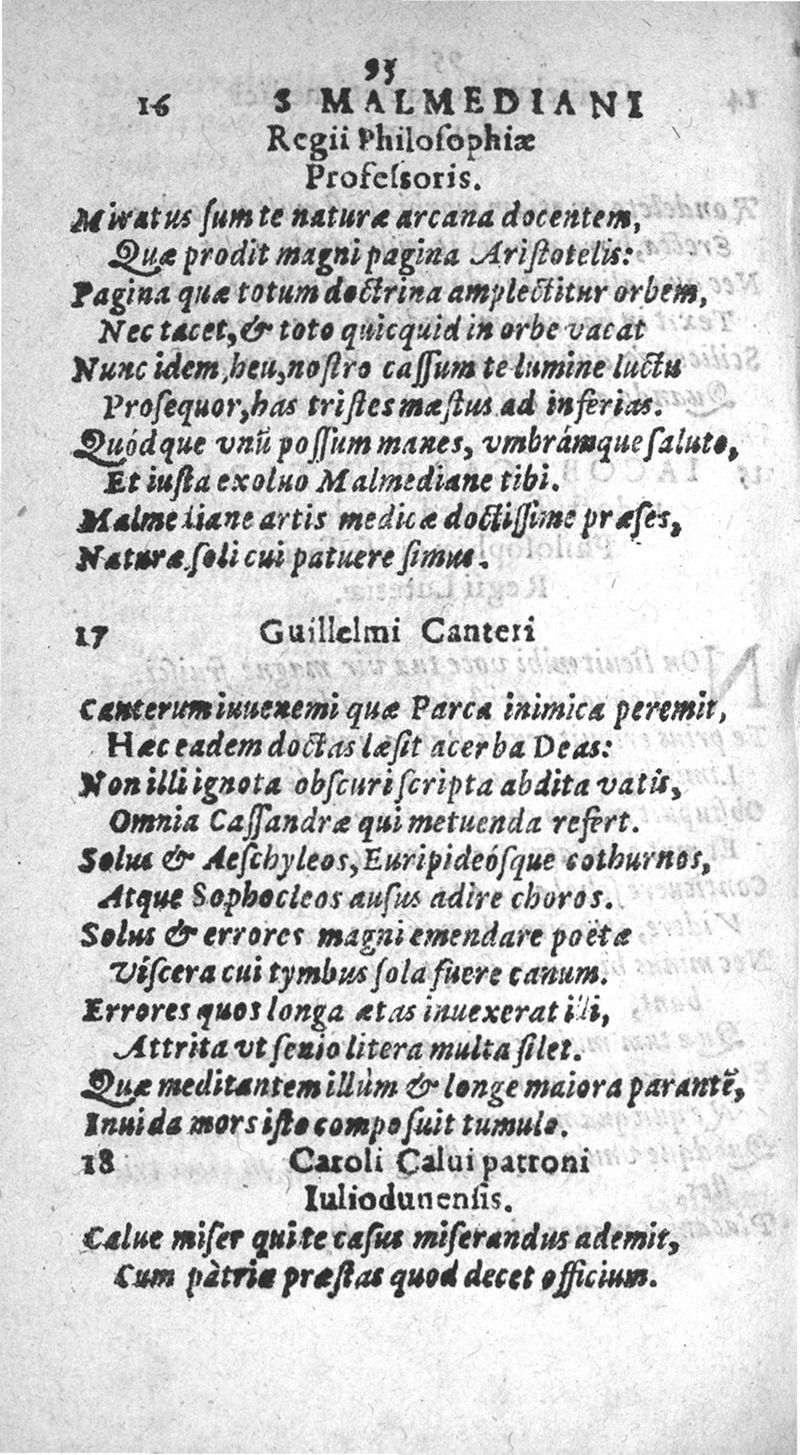 95
16 S MALMEDIANI
Regii Philoſophiæ
Profeſsoris.
Miratus ſum te naturæ arcana docentem,
Quæ prodit magni pagina Ariſtotelis:
Pagina quæ totum doctrina amplectitur orbem,
Nec tacet, & toto quicquid in orbe vacat
Nunc idem, heu, noſtro caſſum te lumine luctu
Proſequor, has triſtes mæſtus ad inferias.
Quódque vnũ poſſum manes, vmbrámque ſaluto,
Et iuſta exoluo Malmediane tibi.
Malmediane artis medicæ doctiſſime præſes,
Naturæ ſoli cui patuere ſinus.
17 Guillelmi Canteri
Canterum iuuenem i quæ Parca inimica peremit,
Hæc eadem doctas læſit acerba Deas:
Non illi ignota obſcuri ſcripta abdita vatis,
Omnia Caſſandræ qui metuenda refert.
Solus & Aeſchyleos, Euripideóſque cothurnos,
Atque Sophocleos auſus adire choros.
Solus & errores magni emendare poëtæ
Viſcera cui tymbus ſola fuere canum.
Errores quos longa ætas inuexerat illi,
Attrita vt ſenio litera multa ſilet.
Quæ meditantem illùm & longe maiora parantẽ,
Inuida mors iſto compoſuit tumulo.
18 Caroli Calui patroni
Iuliodunenſis.
Calue miſer qui te caſus miſerandus ademit,
Cum pàtriæ præſtas quod decet officium.